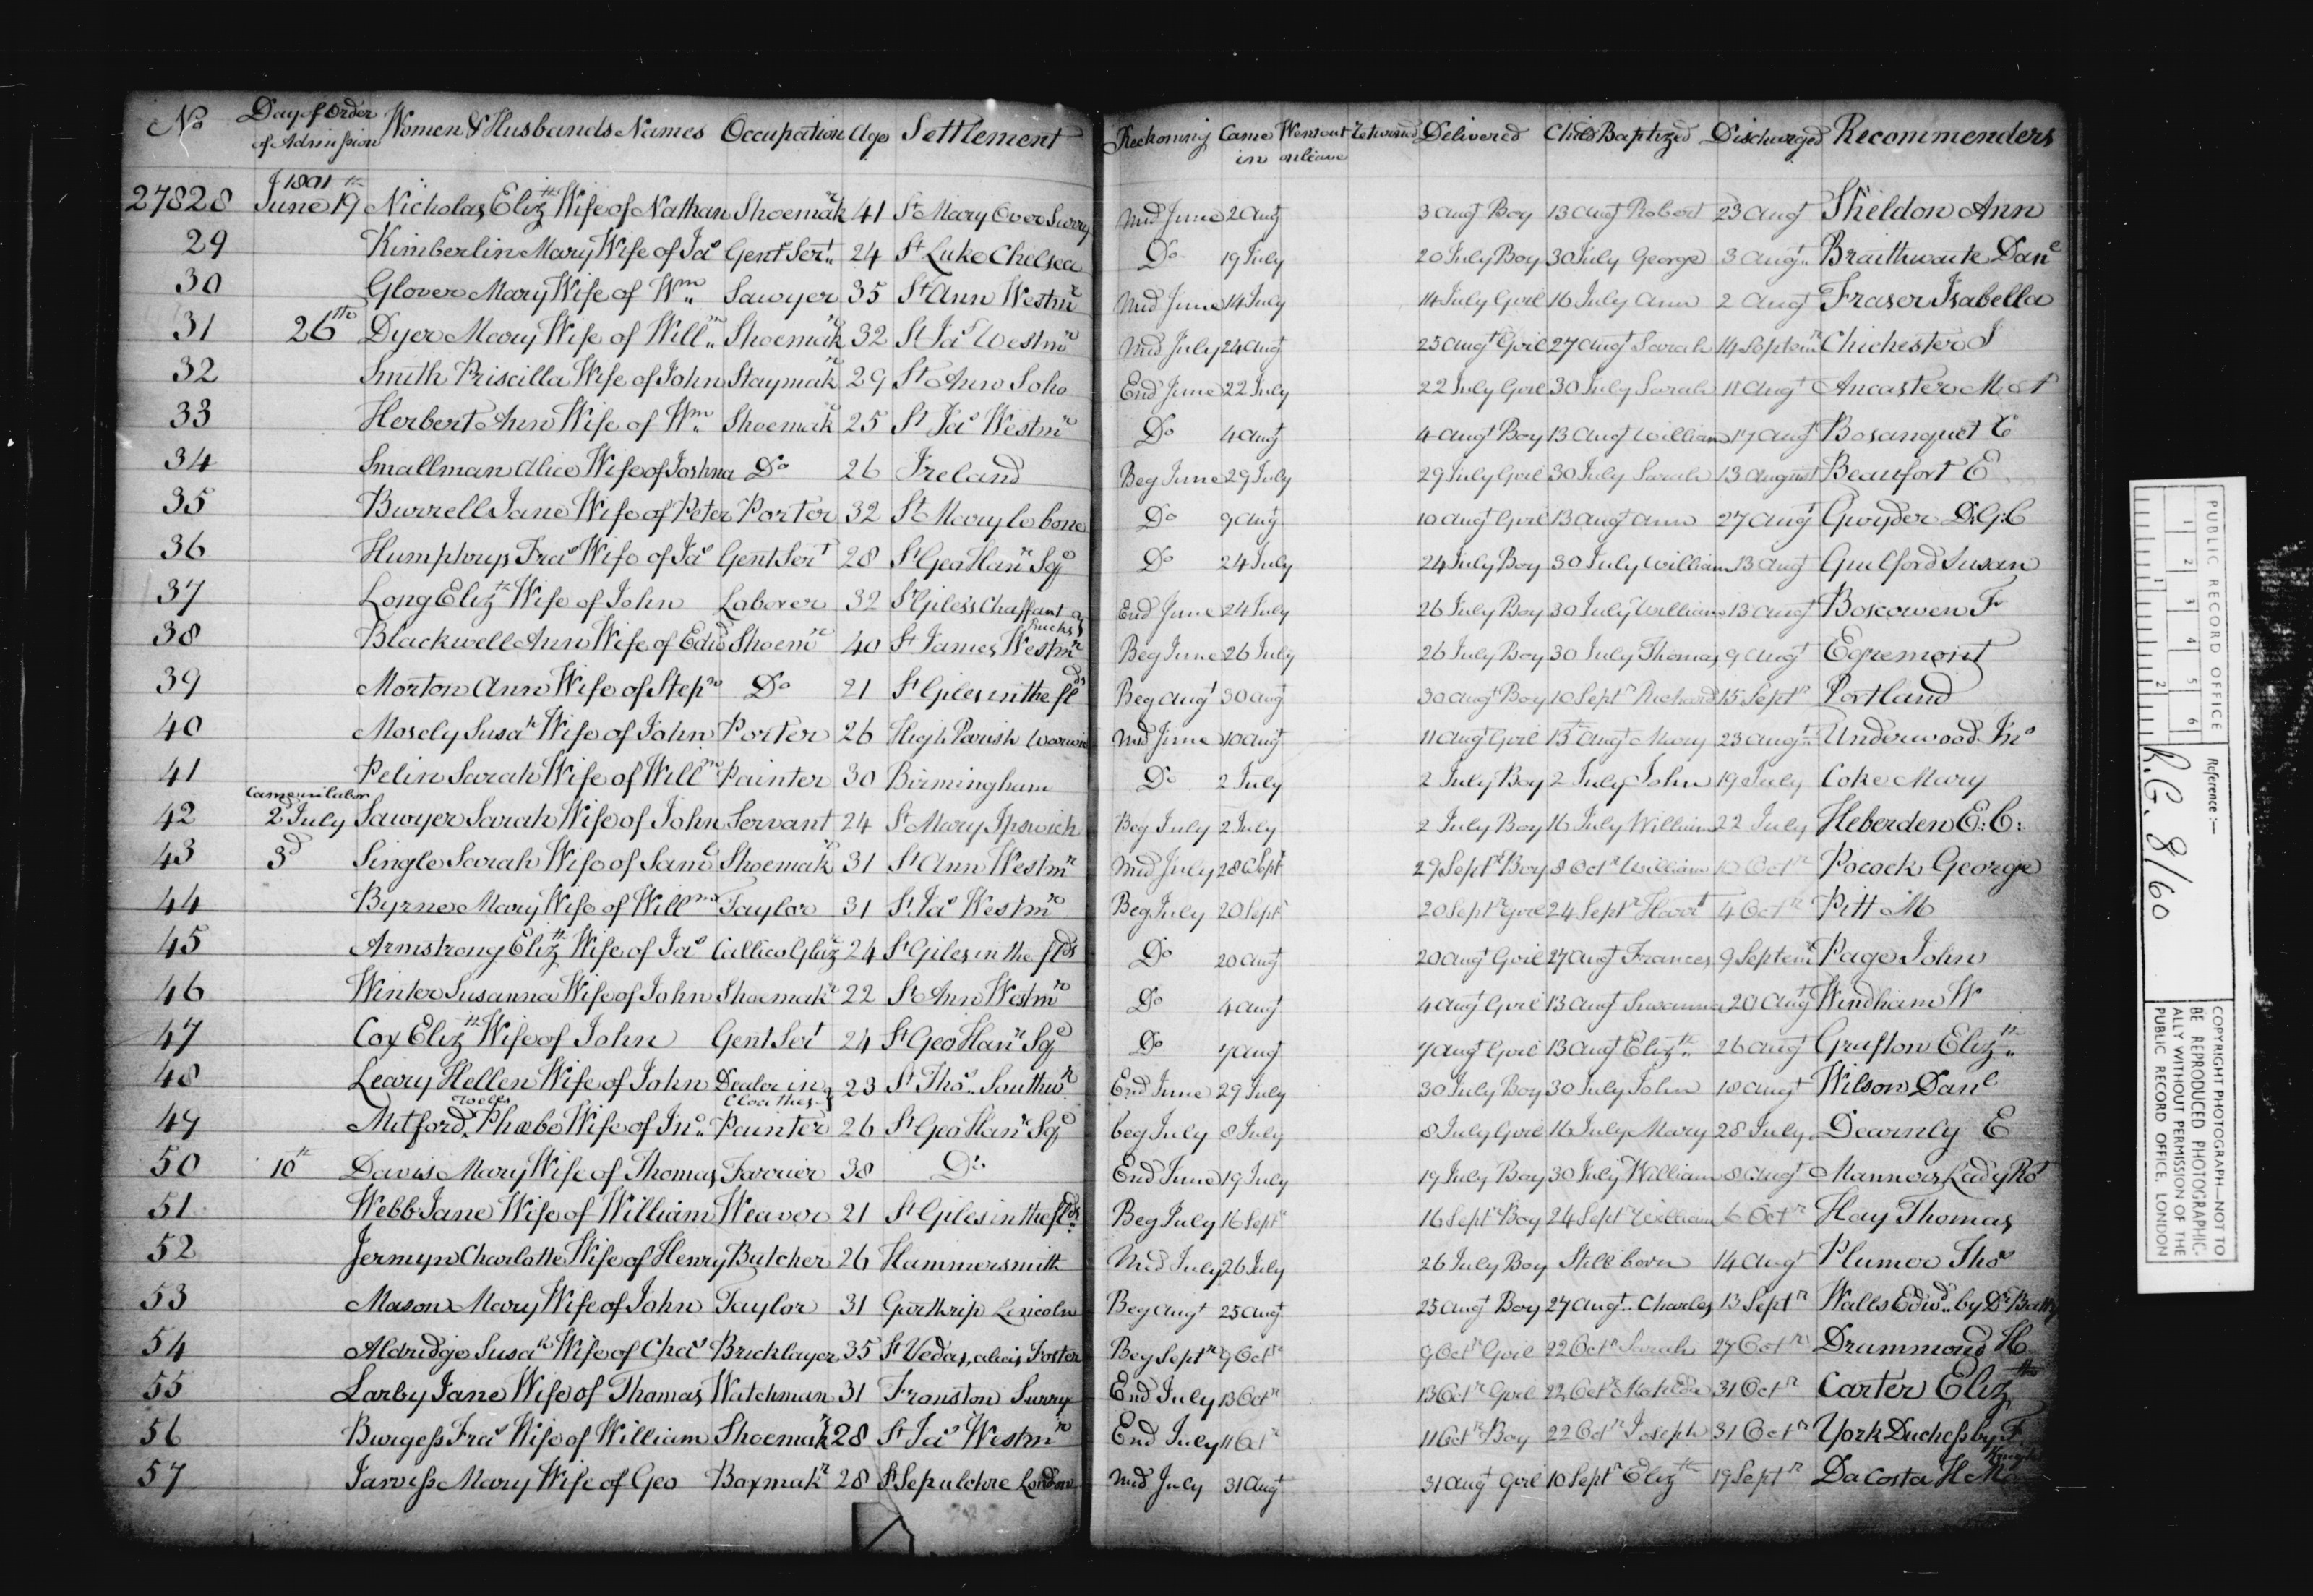 No Day of Order of Admission Women & Husbands Names Occupation Age Settlement Reckoning Came in Went out on leave Returned Delivered Child Baptized Discharged Recommenders
1801
27828 June 19th Nicholas Elizth Wife of Nathan Shoemakr 41 St Mary Over Surry Mid June 2 Augt 3 Augt Boy 13 Augt Robert 23 Augt Sheldon Ann
29 Kimberlin Mary Wife of Jas Gent Sert 24 St Luke Chelsea Do 19 July 20 July Boy 30 July George 3 Augt Braithwaite Danl
30 Glover Mary Wife of Wm Sawyer 35 St Ann Westmr Mid June 14 July 14 July Girl 16 July Ann 2 Augt Fraser Isabella
31 26th Dyer Mary Wife of Willm Shoemakr 32 St Jas Westmr Mid July 24 Augt 25 Augt Girl 27 Augt Sarah 14 Septemr Chichester J
32 Smith Priscilla Wife of John Staymakr 29 St Ann Soho End June 22 July 22 July Girl 30 July Sarah 11 Augt Ancaster M A
33 Herbert Ann Wife of Wm Shoemakr 25 St Jas Westmr Do 4 Augt 4 Augt Boy 13 Augt William 17 Augt Bosanquet E
34 Smallman Alice Wife of Joshua Do 26 Ireland Beg June 29 July 29 July Girl 30 July Sarah 13 August Beaufort E
35 Burrell Jane Wife of Peter Porter 32 St Mary le bone Do 9 Augt 10 Augt Girl 13 Augt Ann 27 Augt Gwyder D:G:C
36 Humphrys Fras Wife of Jas Gent Sert 28 St Geo Hanr Sqe Do 24 July 24 July Boy 30 July William 13 Augt Guilford Susan
37 Long Elizth Wife of John Laborer 32 St Giles's Chaffant Bucks End June 24 July 26 July Boy 30 July William 13 Augt Boscowen F
38 Blackwell Ann Wife of Edwd Shoemr 40 St James Westmr Beg June 26 July 26 July Boy 30 July Thomas 9 Augt Egremont
39 Morton Ann Wife of Stepn Do 21 St Giles in the flds Beg Augt 30 Augt 30 Augt Boy 10 Septr Richard 15 Septr Portland
40 Mosely Susah Wife of John Porter 26 High Parish Warwic Mid June 10 Augt 11 Augt Girl 13 Augt Mary 23 Augt Underwood Jno
41 Pelin Sarah Wife of Willm Painter 30 Birmingham Do 2 July 2 July Boy 2 July John 19 July Coke Mary
Came in labor
42 2 July Sawyer Sarah Wife of John Servant 24 St Mary Ipswich Beg July 2 July 2 July Boy 16 July William 22 July Heberden E:C:
43 3d Single Sarah Wife of Saml Shoemakr 31 St Ann Westmr Mid July 28 Sept 29 Septr Boy 8 Octr William 10 Octr Pocock George
44 Byrne Mary Wife of Willm Taylor 31 St Jas Westmr Beg July 20 Septr 20 Septr Girl 24 Septr Harrt 4 Octr Pitt M
45 Armstrong Elizth Wife of Jas Callico Glazr 24 St Giles in the flds Do 20 Augt 20 Augt Girl 27 Augt Frances 9 Septemr Page John
46 Winter Susanna Wife of John Shoemakr 22 St Ann Westmr Do 4 Augt 4 Augt Girl 13 Augt Susanna 20 Augt Windham W
47 Cox Elizth Wife of John Gent Sert 24 St Geo Hanr Sqe Do 7 Augt 7 Augt Girl 13 Augt Elizth 26 Augt Grafton Elizth
48 Leary Hellen Wife of John Dealer in Cloathes 23 St Thos Southwr End June 29 July 30 July Boy 30 July John 18 Augt Wilson Danl
49 Mitford Phæbe Wife of Jno Painter 26 St Geo Hanr Sqe beg July 8 July 8 July Girl 16 July Mary 28 July Dearnly E
50 10th Davis Mary Wife of Thomas Farrier 38 Do End June 19 July 19 July Boy 30 July William 8 Augt Manners Lady Rot
51 Webb Jane Wife of William Weaver 21 St Giles in the flds Beg July 16 Septr 16 Septr Boy 24 Septr William 6 Octr Hay Thomas
52 Jermyn Charlotte Wife of Henry Butcher 26 Hammersmith Mid July 26 July 26 July Boy Still born 14 Augt Plumer Thos
53 Mason Mary Wife of John Taylor 31 Lincoln Beg Augt 25 Augt 25 Augt Boy 27 Augt Charles 13 Septr Walls Edwd by Dr
54 Aldridge Susah Wife of Chas Bricklayer 35 St Vedas, alias Foster Beg Septr 9 Octr 9 Octr Girl 22 Octr Sarah 27 Octr Drummond H
55 Larby Jane Wife of Thomas Watchman 31 Franston Surry End July 13 Octr 13 Octr Girl 22 Octr Matilda 31 Octr Carter Elizth
56 Burgess Fras Wife of William Shoemakr 28 St Jas Westmr End July 11 Octr 11 Octr Boy 22 Octr Joseph 31 Octr York Duchess by F
57 Jarviss Mary Wife of Geo Boxmakr 28 St Sepulchre London Mid July 31 Augt 31 Augt Girl 10 Septr Elizth 19 Septr Da Costa H M
PUBLIC RECORD OFFICE
1 2 3 4 5 6
1 2
Reference :—
R.G. 8/60
COPYRIGHT PHOTOGRAPH—NOT TO
BE REPRODUCED PHOTOGRAPHIC-
ALLY WITHOUT PERMISSION OF THE
PUBLIC RECORD OFFICE, LONDON